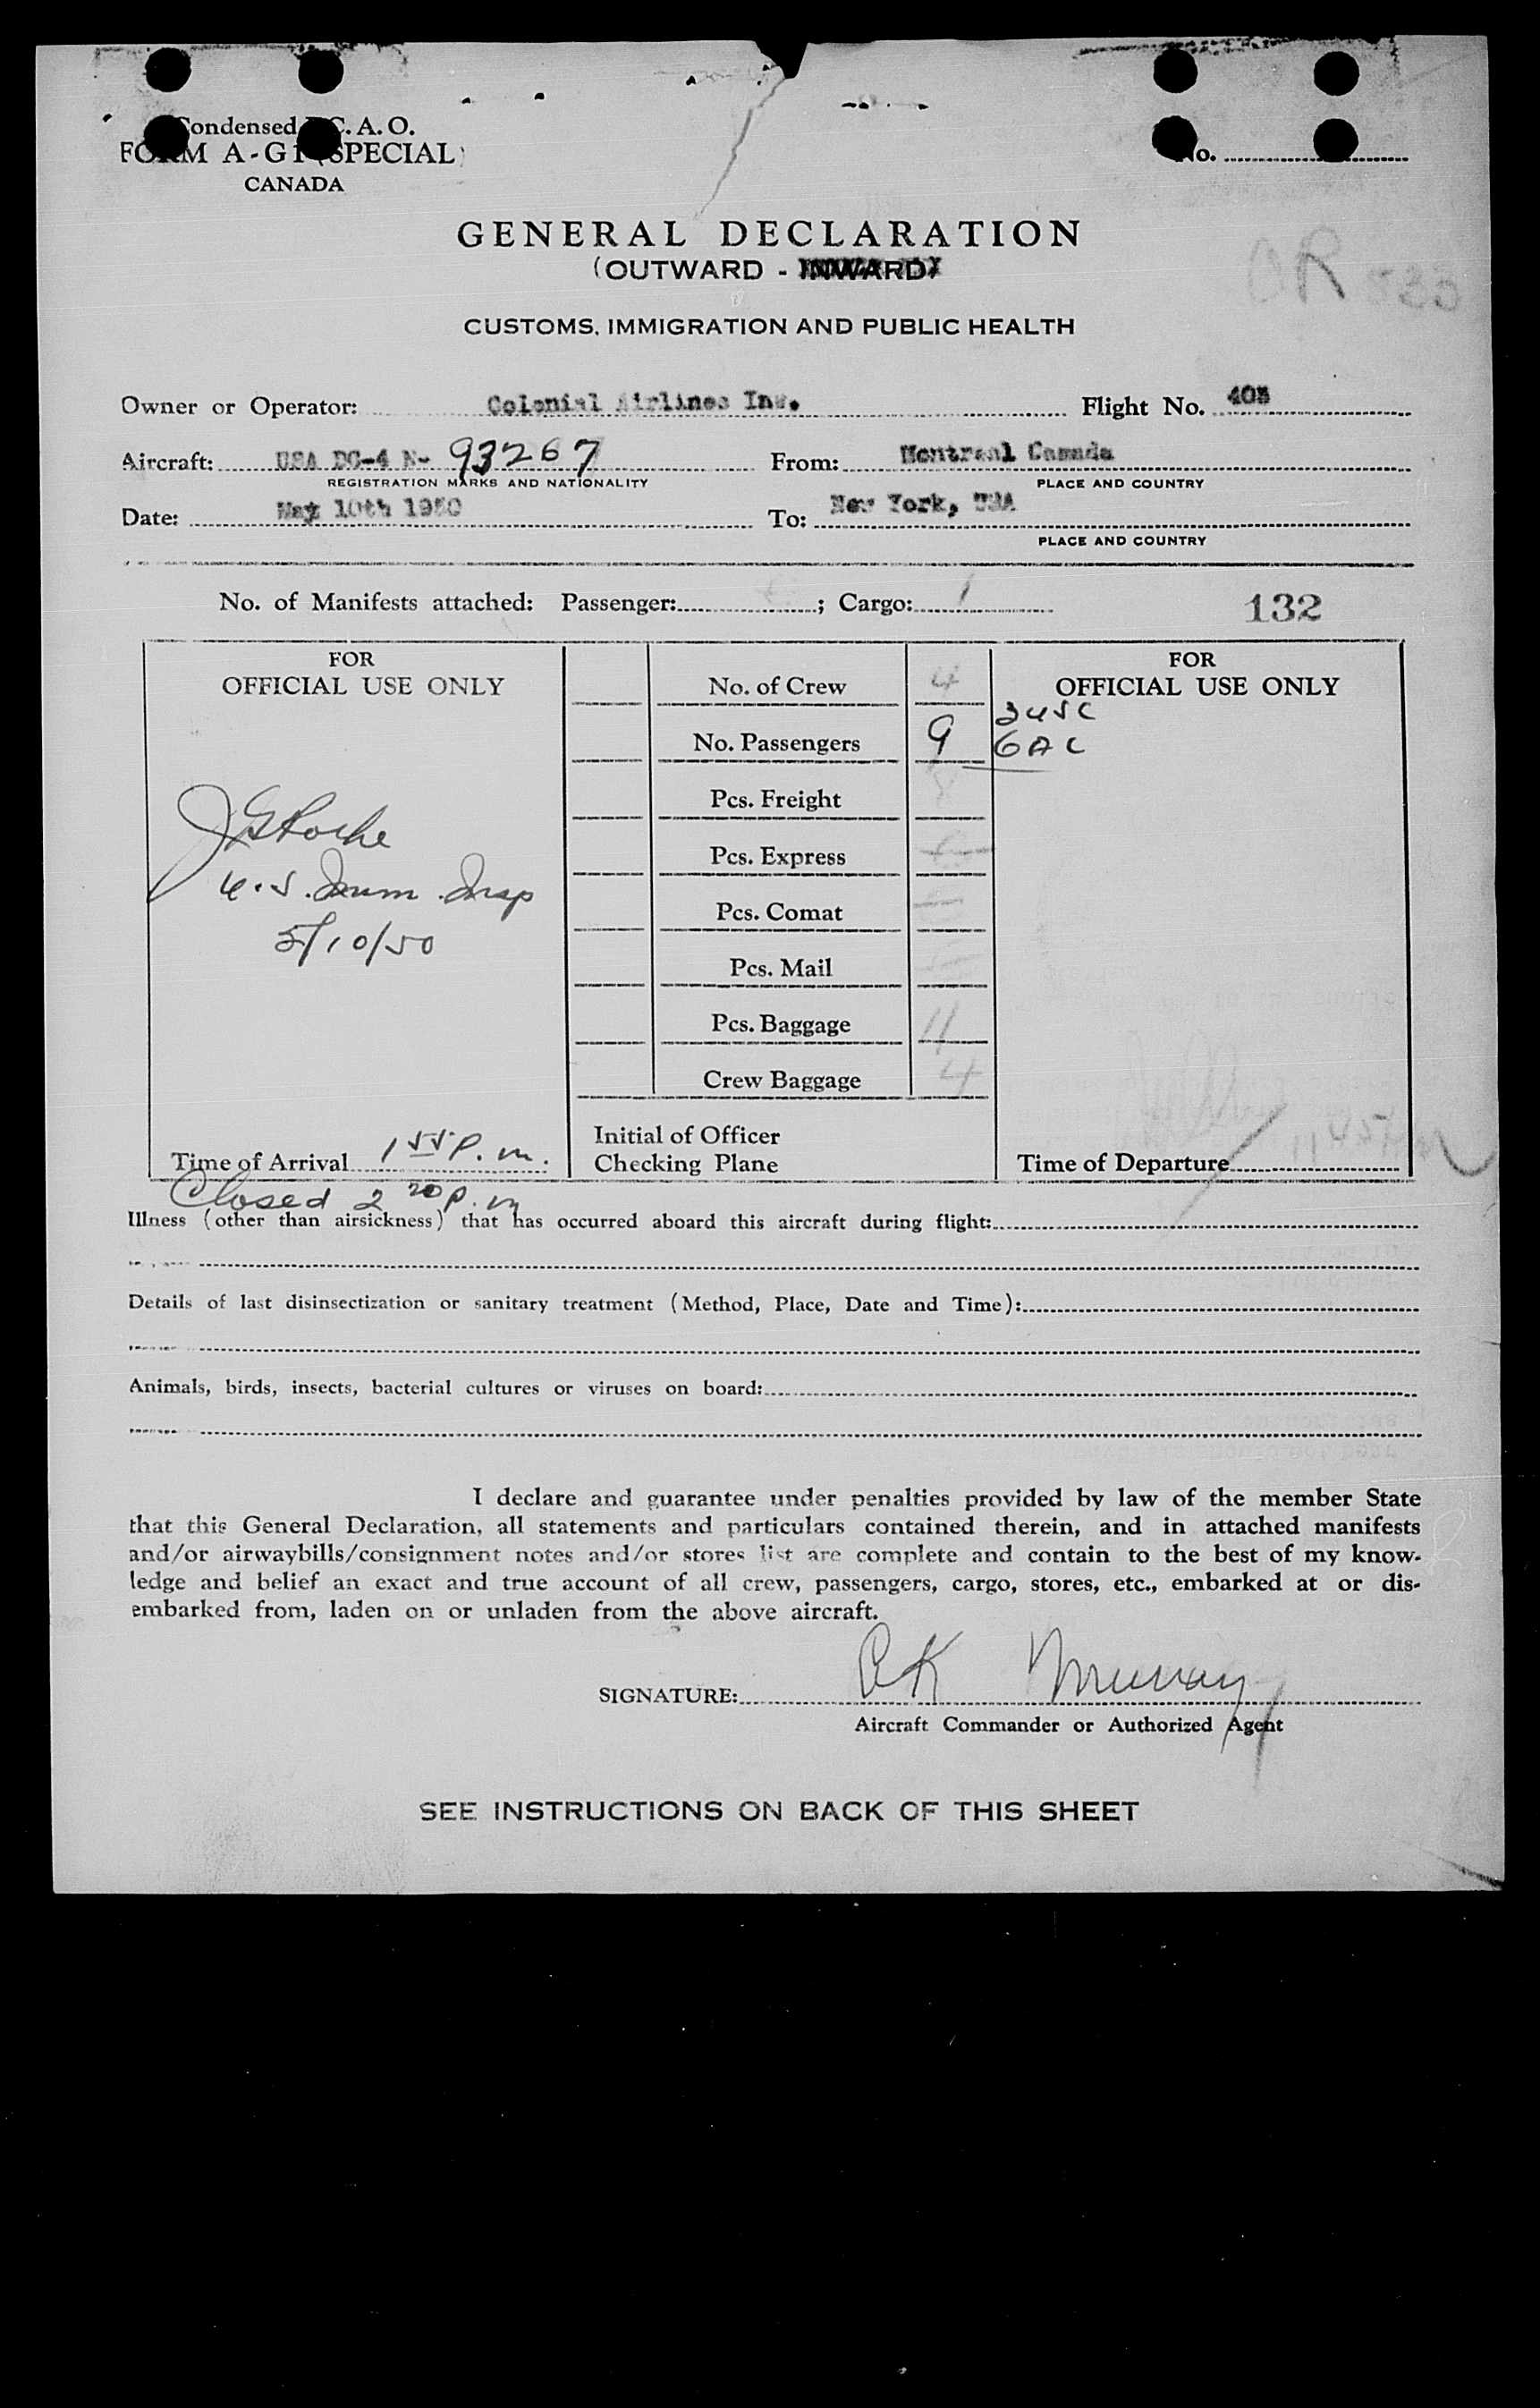 Condensed I.C.A.O.
FORM A-G1 (SPECIAL)
CANADA
No.
GENERAL DECLARATION
(OUTWARD - INWARD)
OR
CUSTOMS, IMMIGRATION AND PUBLIC HEALTH
Owner or Operator: Colonial Airlines Inc. Flight No. 403
Aircraft: USA DC-4 N- 93267 From: Montreal Canada
REGISTRATION MARKS AND NATIONALITY PLACE AND COUNTRY
Date: May 10th 1950 To: New York, USA
PLACE AND COUNTRY
No. of Manifests attached: Passenger: ; Cargo: 1 132
FOR
OFFICIAL USE ONLY
J G Roche
U.S. Imm. Insp
5/10/50
Time of Arrival 1 55 P. m.
Closed 2 20 p. m
No. of Crew 4
No. Passengers 9
Pcs. Freight
Pcs. Express
Pcs. Comat
Pcs. Mail
Pcs. Baggage 11
Crew Baggage 4
Initial of Officer
Checking Plane
FOR
OFFICIAL USE ONLY
3 USC
6 AC
Time of Departure 11 45 AM
Illness (other than airsickness) that has occurred aboard this aircraft during flight:
Details of last disinsectization or sanitary treatment (Method, Place, Date and Time):
Animals, birds, insects, bacterial cultures or viruses on board:
I declare and guarantee under penalties provided by law of the member State
that this General Declaration, all statements and particulars contained therein, and in attached manifests
and/or airwaybills/consignment notes and/or stores list are complete and contain to the best of my know-
ledge and belief an exact and true account of all crew, passengers, cargo, stores, etc., embarked at or dis-
embarked from, laden on or unladen from the above aircraft.
SIGNATURE: CK Murray
Aircraft Commander or Authorized Agent
SEE INSTRUCTIONS ON BACK OF THIS SHEET